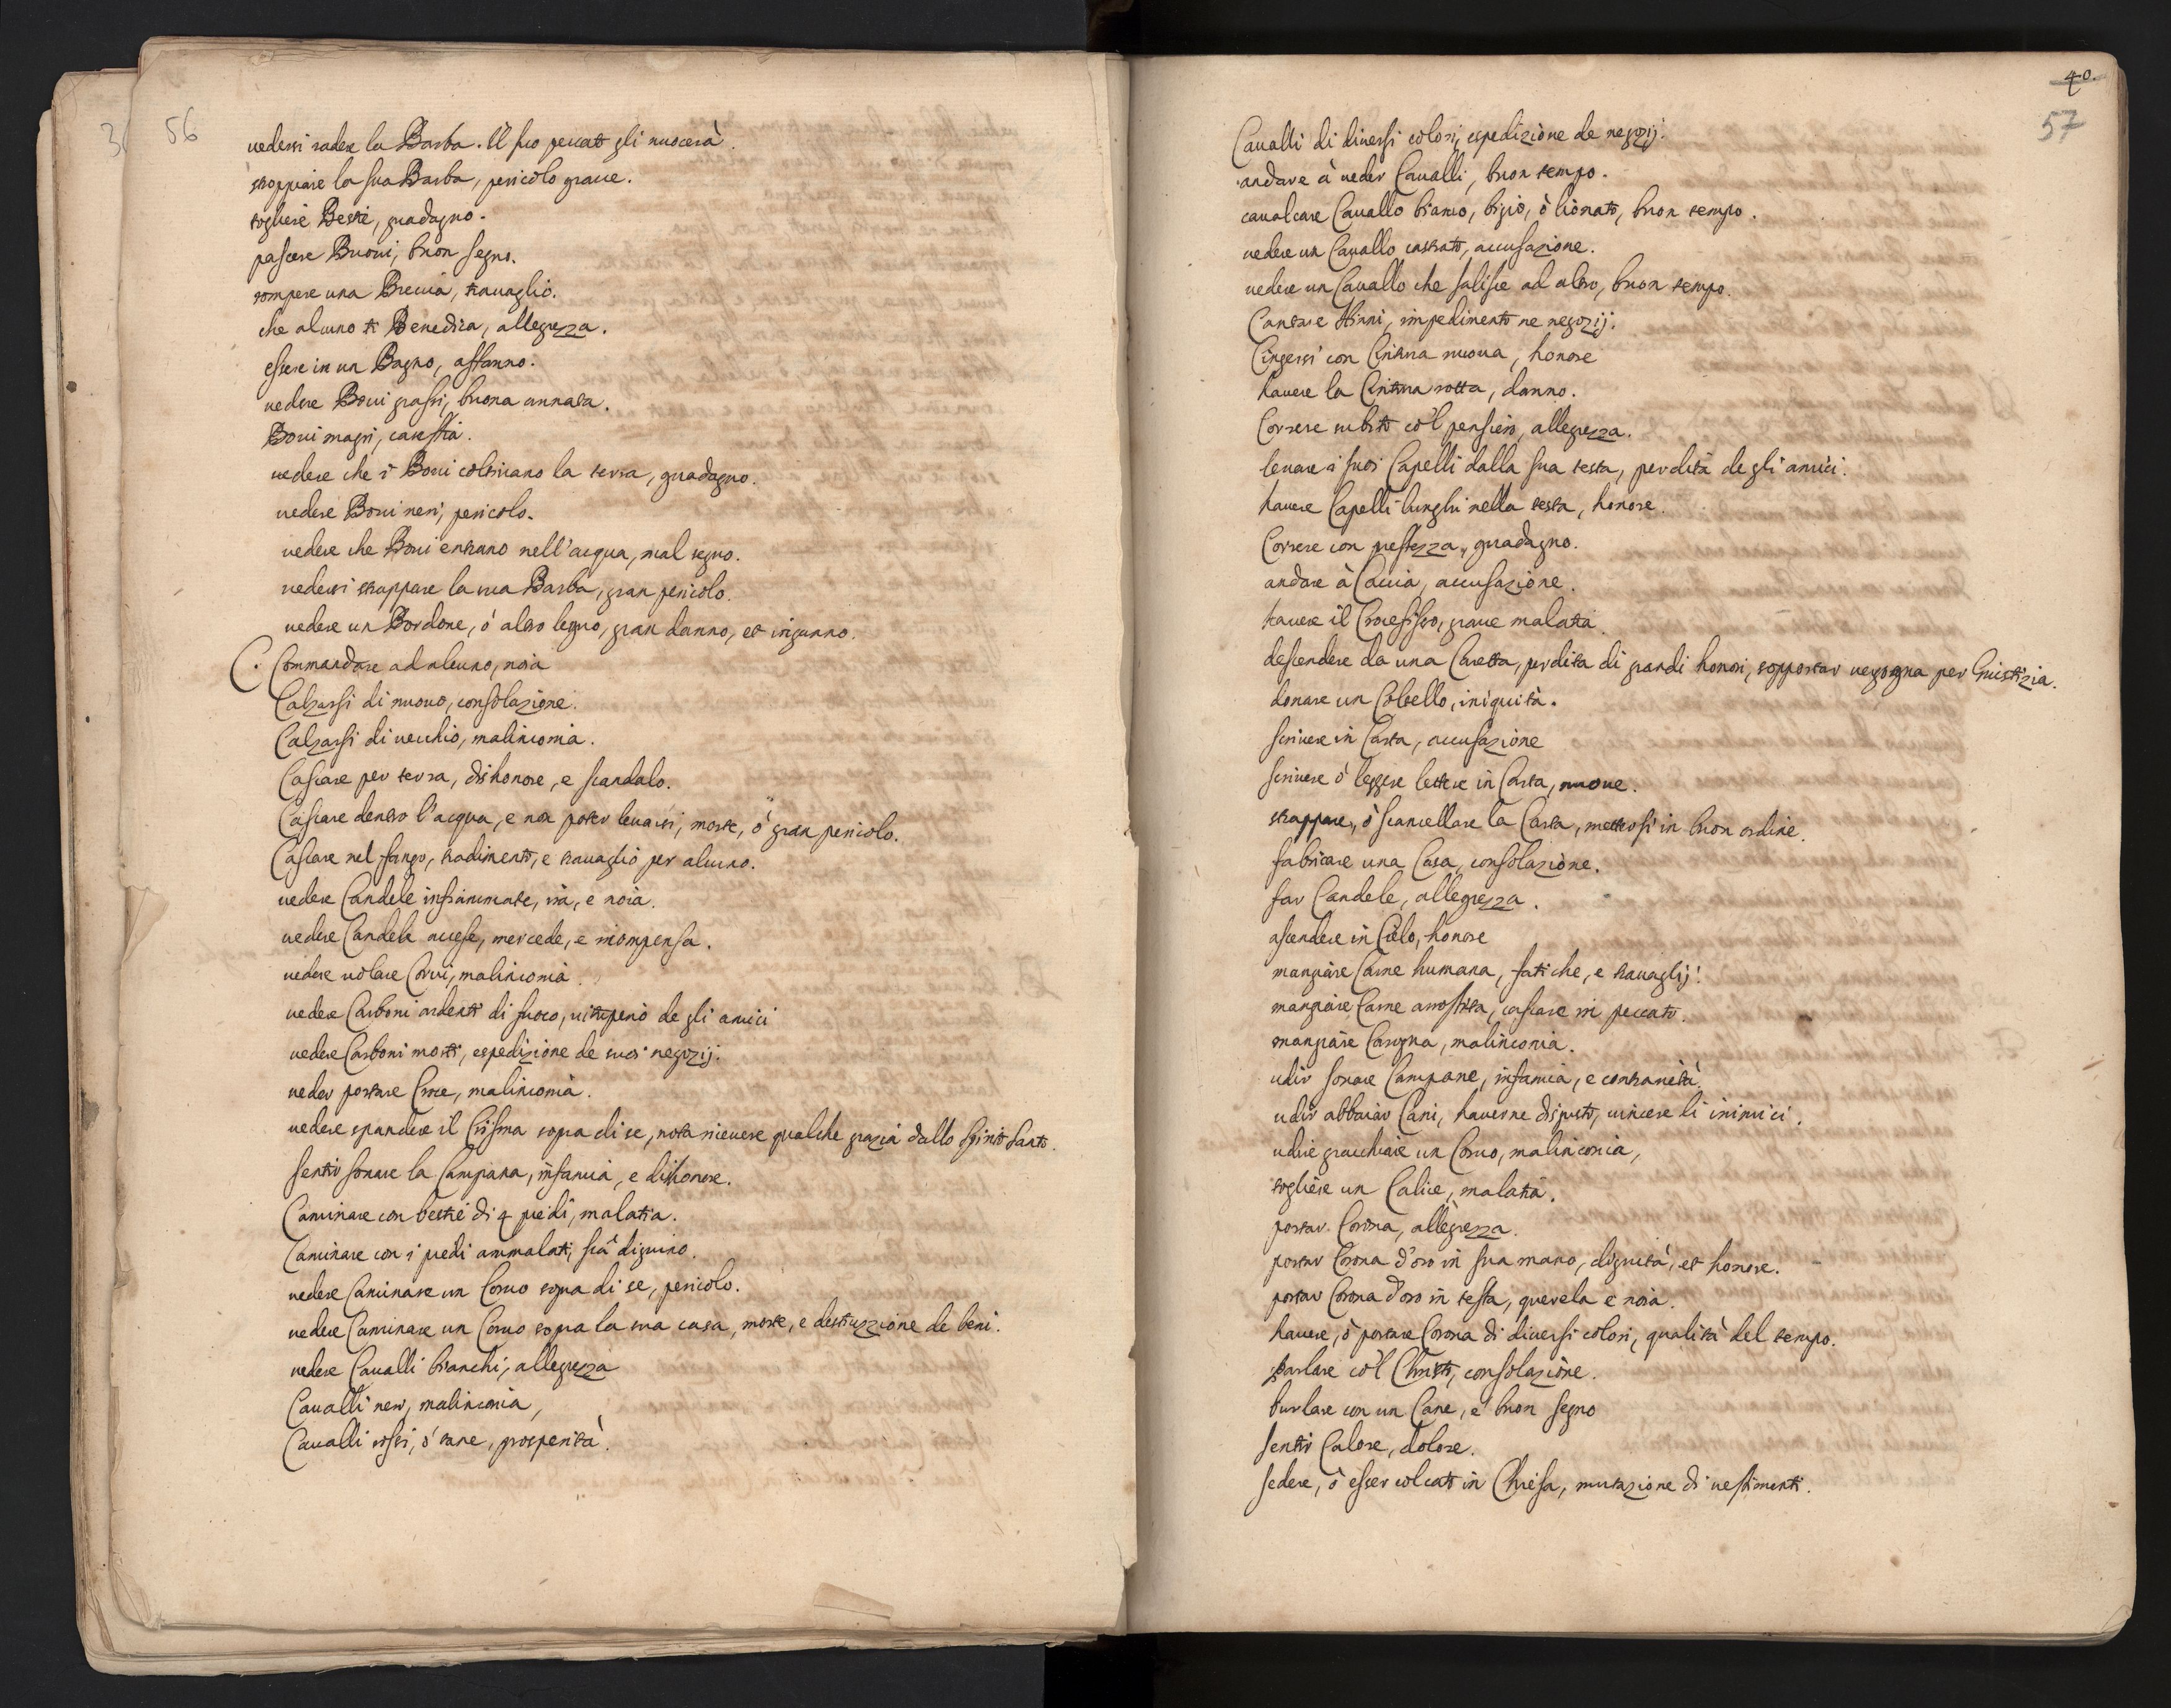 56
uedersi radere la Barba. Il suo peccato gli nuocerà.
stroppiare la sua Barba, pericolo graue.
togliere Bestie, guadagno.
pascere Buoui, buon segno.
rompere una Breccia, trauaglio.
che alcuno ti Benedica, allegrezza.
essere in un Bagno, affanno.
uedere Boui grassi, buona annata.
Boui magri, carestia.
uedere che i Boui coltiuano la terra, guadagno.
uedere Boui neri, pericolo.
uedere che Boui entrano nell'acqua, mal segno.
uedersi strappare la sua Barba, gran pericolo.
uedere un Bordone, ò altro legno, gran danno, et inganno.
C. Commandare ad alcuno, noia
Calzarsi di nuouo, consolazione.
Calzarsi di uecchio, malinconia.
Cascare per terra, dishonore, e scandalo.
Cascare dentro l'acqua, e non poter leuarsi, morte, ò gran pericolo.
Cascare nel fango, tradimento, e trauaglio per alcuno.
uedere Candele infiammate, ira, e noia.
uedere Candele accese, mercede, e ricompensa.
uedere uolare Corui, malinconia.
uedere Carboni ardenti di fuoco, uituperio de gli amici
uedere Carboni morti, espedizione de suoi negozij.
ueder portare Croce, malinconia.
uedere spandere il Crisma sopra di se, nota riceuere qualche grazia dallo Spirito Santo.
sentir sonare la Campana, infamia, e dishonore.
Caminare con bestie di 4 piedi, malatia.
Caminare con i piedi ammalati, stà digiuno.
uedere Caminare un Coruo sopra di se, pericolo.
uedere Caminare un Coruo sopra la sua casa, morte, e destruzzione de beni.
uedere Caualli bianchi, allegrezza
Caualli neri, malinconia,
Caualli rossi, ò sane, prosperità.
40.
57
Caualli di diuersi colori, espedizione de negozij.
andare à ueder Caualli, buon tempo.
caualcare Cauallo bianco, bigio, ò lionato, buon tempo.
uedere un Cauallo castrato, accusazione.
uedere un Cauallo che salisce ad alto, buon tempo.
Cantare Hinni, impedimento ne negozij.
Cingersi con Cintura nuoua, honore
hauere la Cintura rotta, danno.
Correre subito co'l pensiero, allegrezza.
leuare i suoi Capelli dalla sua testa, perdita de gli amici.
hauere Capelli lunghi nella testa, honore.
Correre con prestezza, guadagno.
andare à Caccia, accusazione.
hauere il Crocifisso, graue malatia.
descendere da una Caretta, perdita di grandi honori, sopportar uergogna per Giustizia.
donare un Coltello, iniquità.
scriuere in Carta, accusazione
scriuere ò leggere lettere in Carta, nuoue.
strappare, ò scancellare la Carta, mettersi in buon ordine.
fabricare una Casa, consolazione.
far Candele, allegrezza.
ascendere in Cielo, honore
mangiare Carne humana, fatiche, e trauaglij.
mangiare Carne arrostita, cascare in peccato.
mangiare Carogna, malinconia.
udir sonare Campane, infamia, e contrarietà.
udir abbaiar Cani, hauerne disgusto, uincere li inimici.
udire gracchiare un Coruo, malinconia,
togliere un Calice, malatia.
portar Corona, allegrezza.
portar Corona d'oro in sua mano, dignità, et honore.
portar Corona d'oro in testa, querela e noia.
hauere, ò portare Corona di diuersi colori, qualità del tempo.
parlare co'l Christo, consolazione.
burlare con un Cane, è buon segno
sentir Calore, dolore.
sedere, ò esser colcato in Chiesa, mutazione di uestimenti.